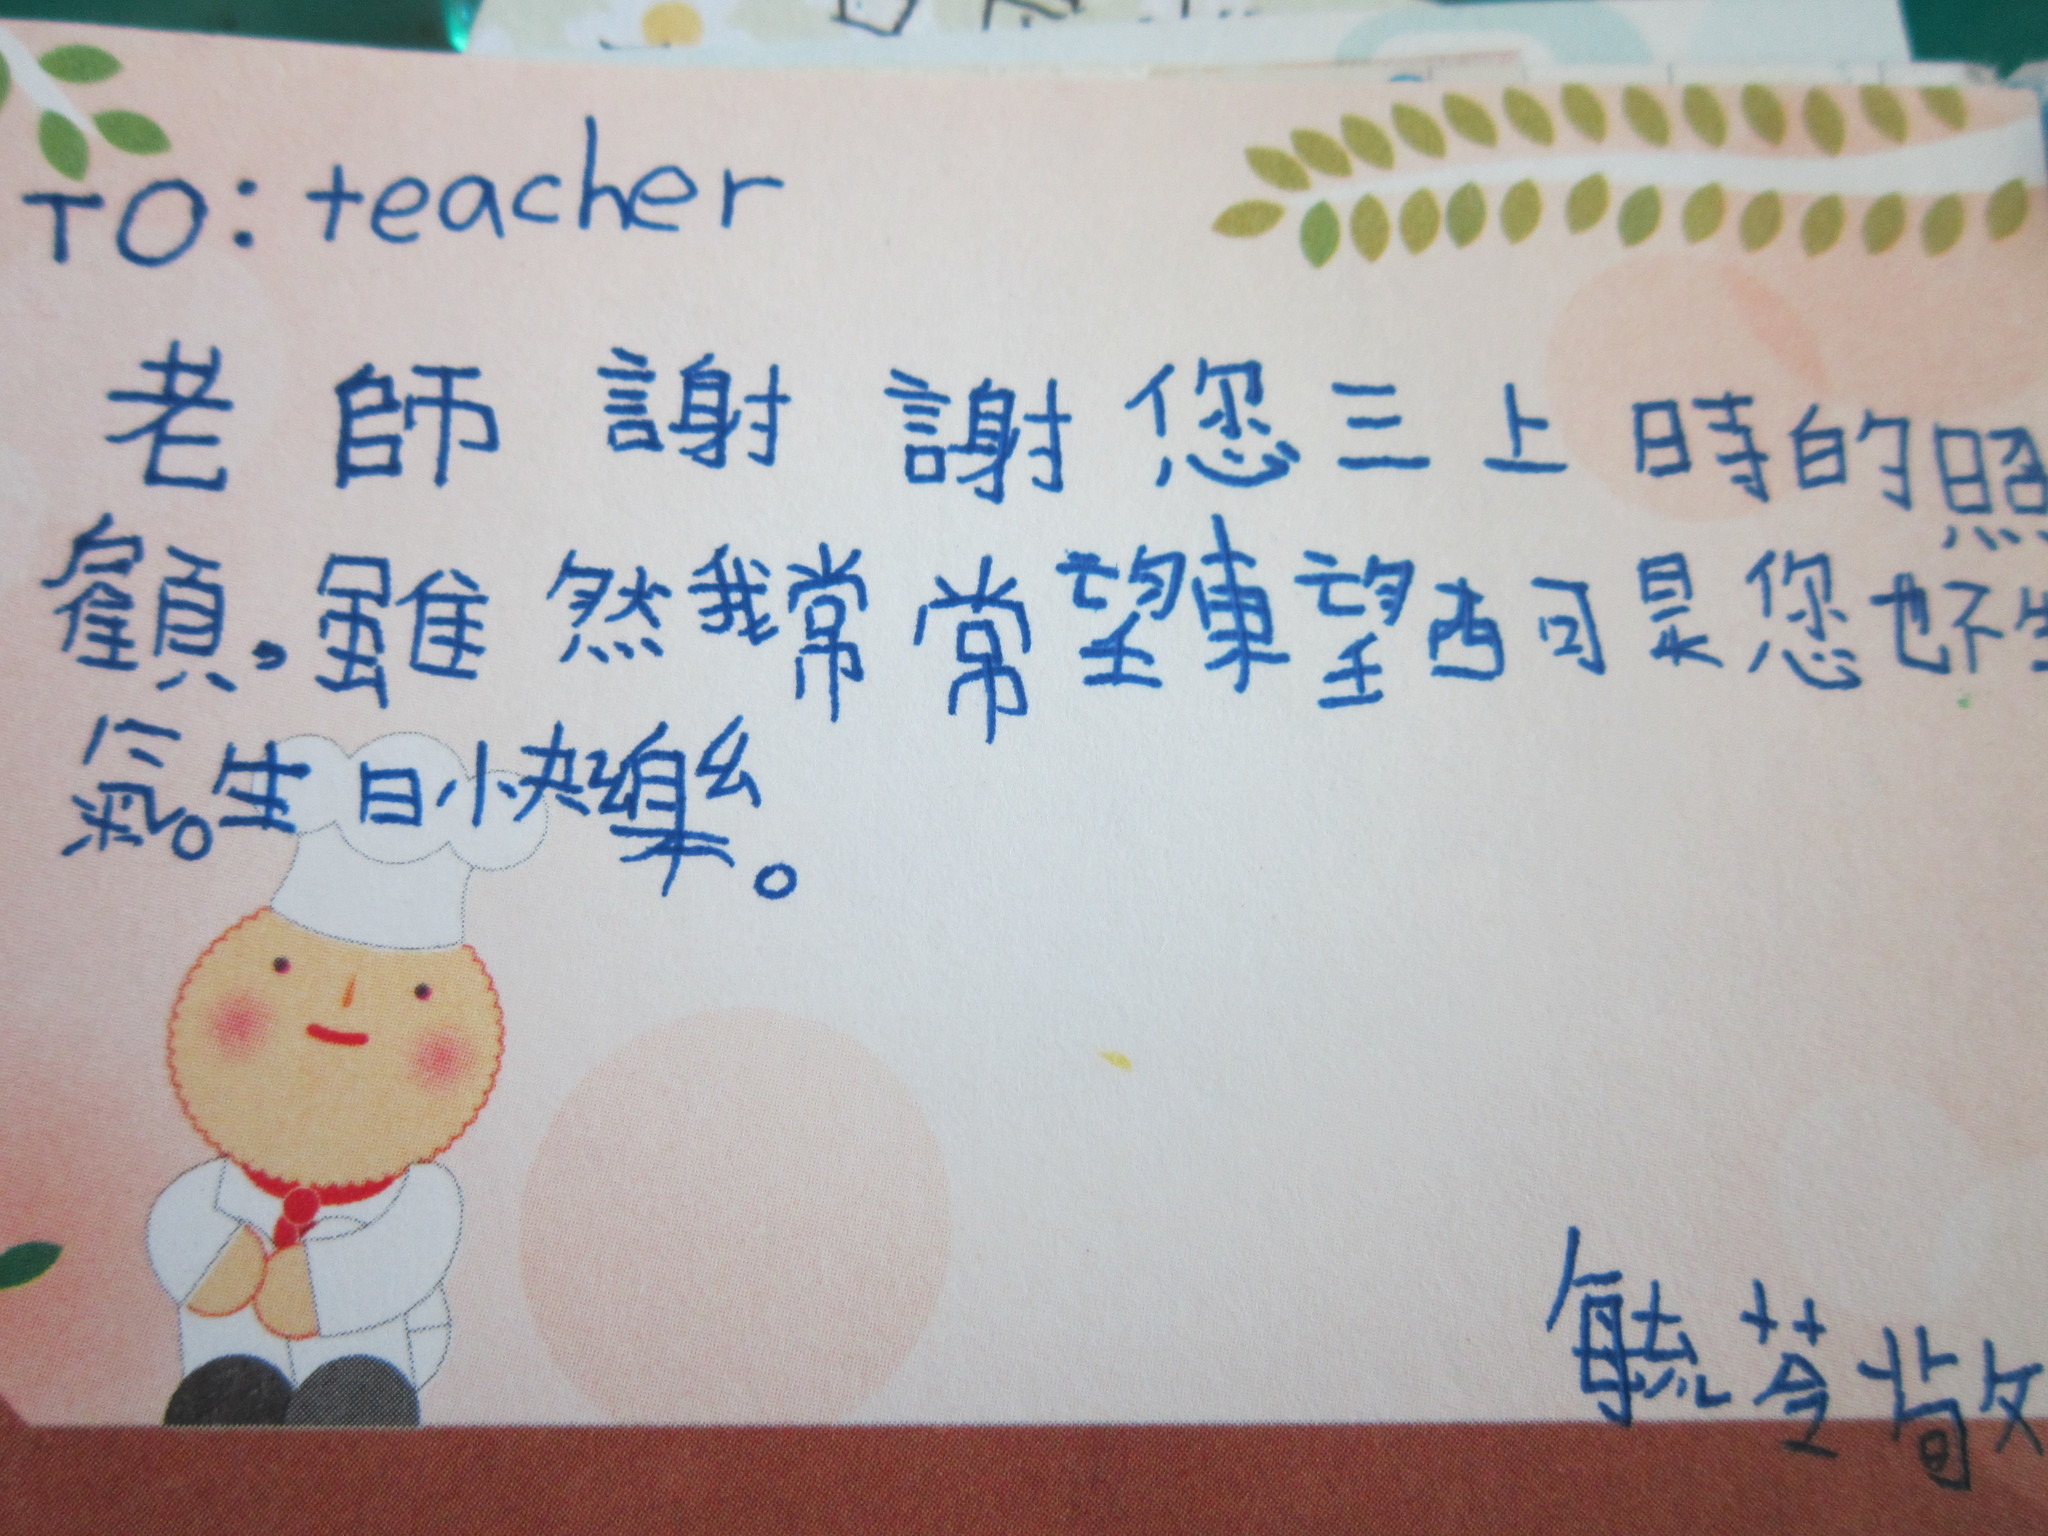 TO: teacher
老師謝謝您三上時的照
顧,雖然我常常望東望西可是您也不生
氣。生日快樂。
毓苓敬